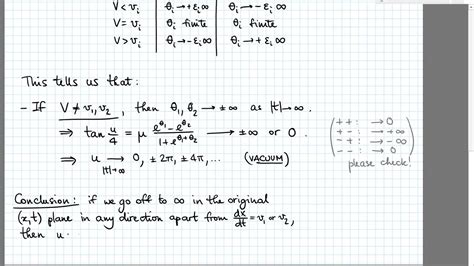 V < v_i | θ_i → +ε_i ∞ | θ_i → -ε_i ∞
V = v_i | θ_i finite | θ_i finite
V > v_i | θ_i → -ε_i ∞ | θ_i → +ε_i ∞
This tells us that:
- If V ≠ v_1, v_2, then θ_1, θ_2 → ±∞ as |t| → ∞.
⇒ tan u/4 = μ (e^{θ_1} - e^{θ_2})/(1 + e^{θ_1+θ_2}) → ±∞ or 0.
(++ : → 0
+- : → +∞
-+ : → -∞
-- : → 0)
please check!
⇒ u → 0, ±2π, ±4π, ... (VACUUM)
|t|→∞
Conclusion: if we go off to ∞ in the original
(x,t) plane in any direction apart from dx/dt = v_1 or v_2,
then u